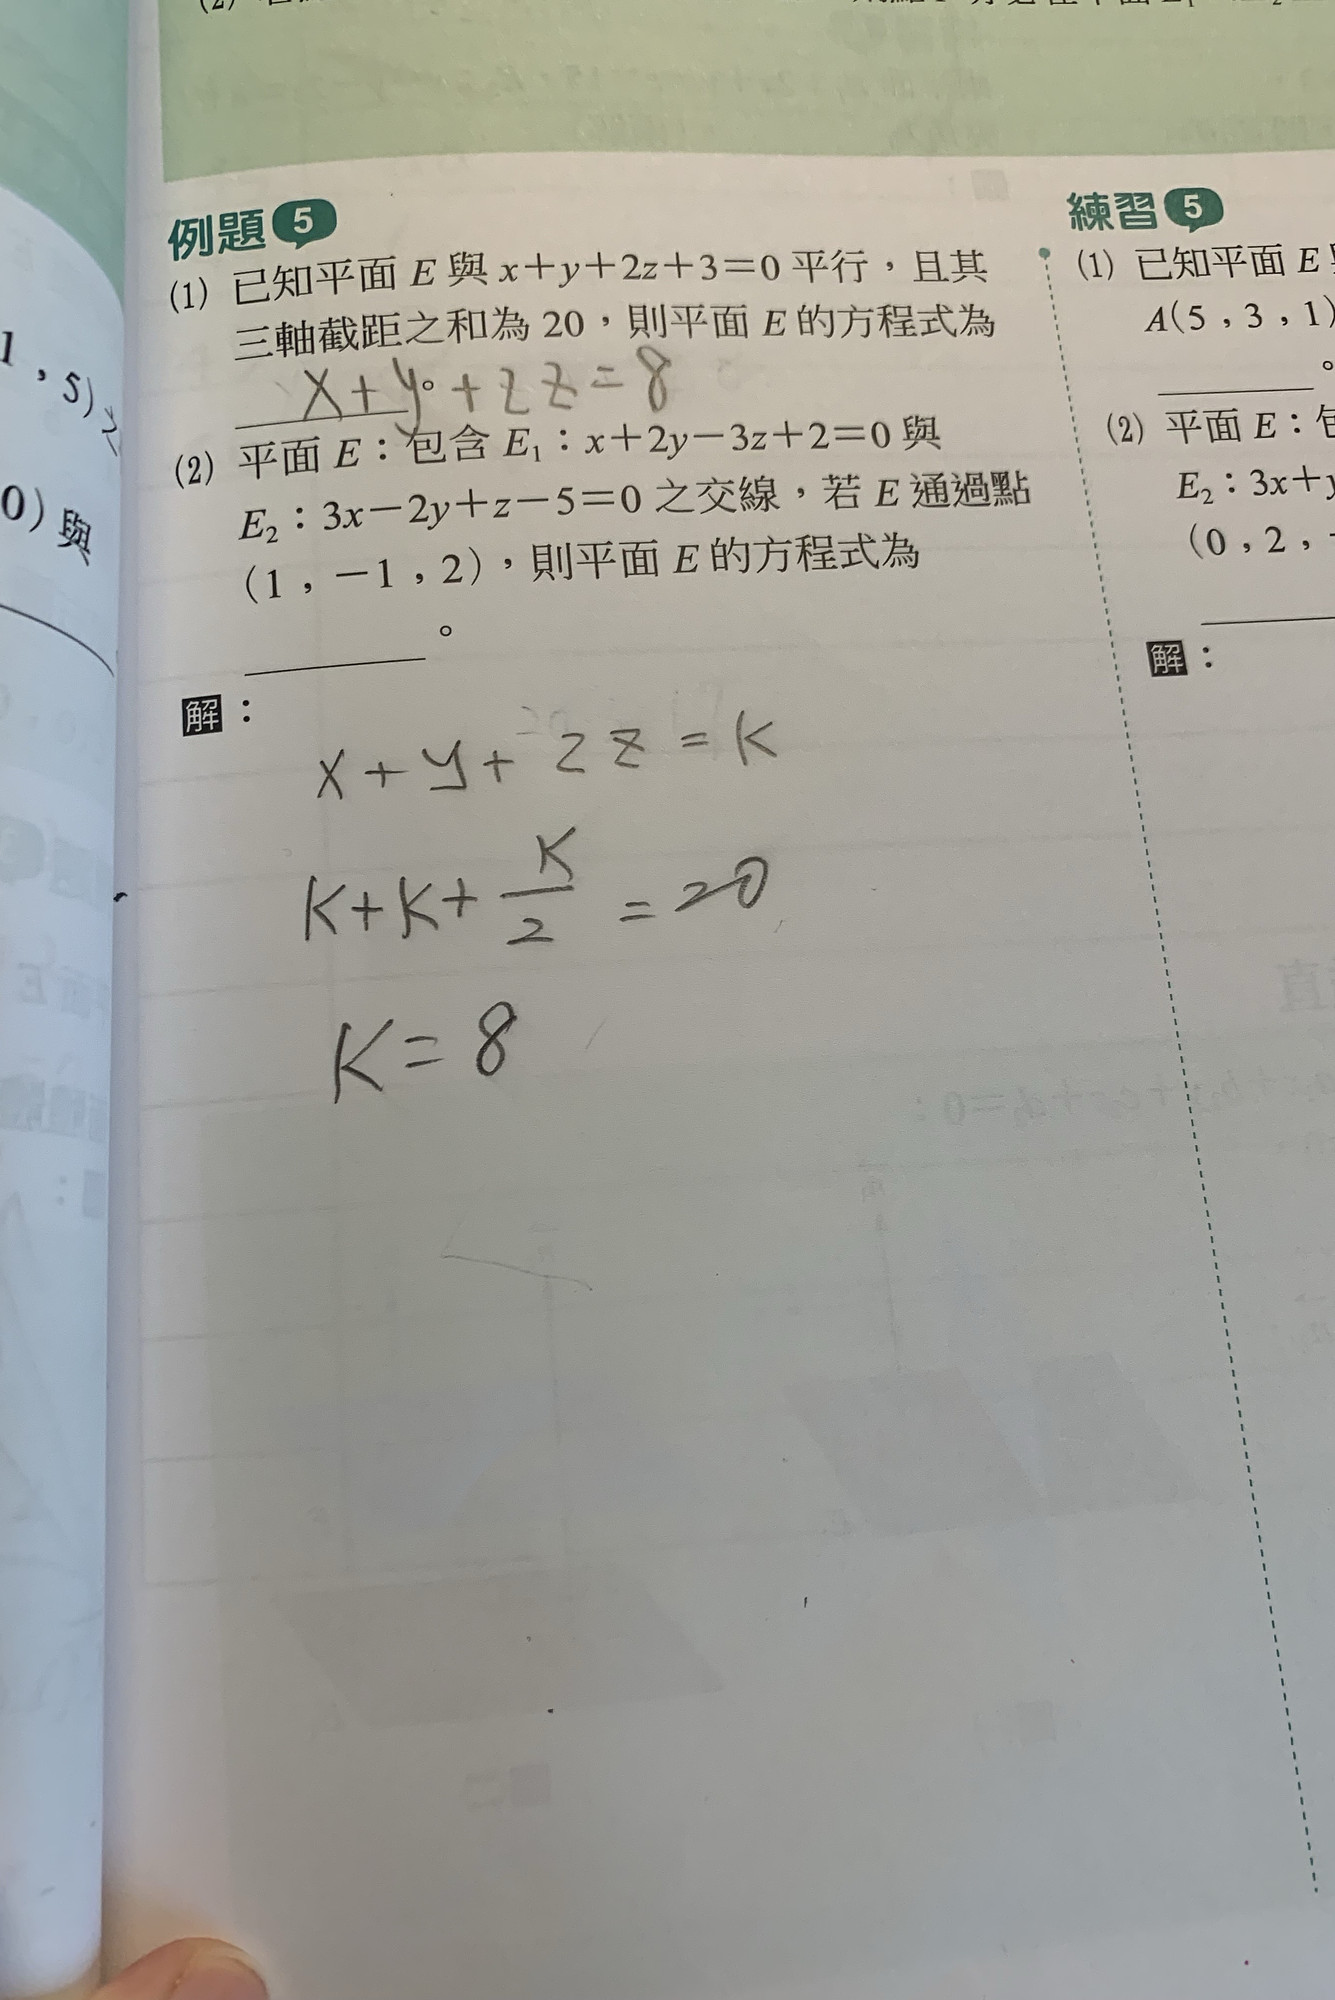 例題 5
(1) 已知平面 E 與 x+y+2z+3=0 平行，且其
三軸截距之和為 20，則平面 E 的方程式為
x+y+2z=8
。
(2) 平面 E：包含 E₁：x+2y-3z+2=0 與
E₂：3x-2y+z-5=0 之交線，若 E 通過點
(1，-1，2)，則平面 E 的方程式為
。
解：
x+y+2z=k
k+k+k/2=20
k=8
練習 5
(1) 已知平面 E
A(5，3，1)
。
(2) 平面 E：
E₂：3x+y
(0，2，
解：
1，5)
0) 與